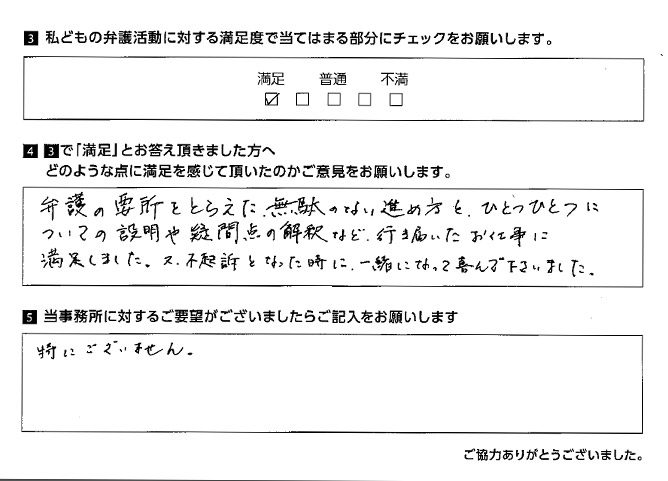 3 私どもの弁護活動に対する満足度で当てはまる部分にチェックをお願いします。
満足 普通 不満
☑ □ □ □ □
4 3で「満足」とお答え頂きました方へ
どのような点に満足を感じて頂いたのかご意見をお願いします。
弁護の要所をとらえた、無駄のない進め方と、ひとつひとつに
ついての説明や疑問点の解釈など、行き届いたお仕事に
満足しました。又、不起訴となった時に、一緒になって喜んで下さいました。
5 当事務所に対するご要望がございましたらご記入をお願いします
特にございません。
ご協力ありがとうございました。